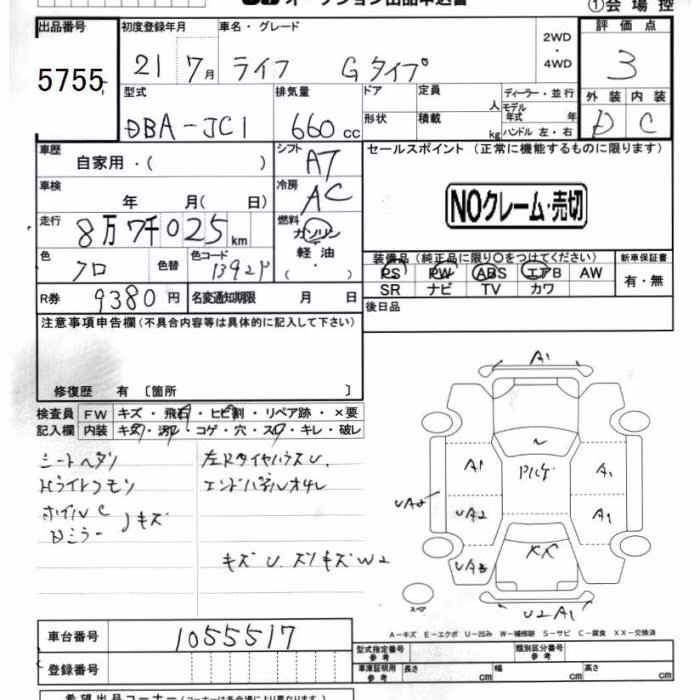 オークション出品申込書
①会場控
出品番号 初度登録年月 車名・グレード 2WD・4WD 評価点
5755 21 7月 ライフ Gタイプ 3
型式 排気量 ドア 定員 人 ディーラー・並行 外装 内装
DBA-JC1 660cc 形状 積載 kg モデル年式 年 ハンドル 左・右 D C
車歴 自家用・( ) シフト AT セールスポイント (正常に機能するものに限ります)
車検 年 月( 日) 冷房 AC NOクレーム・売切
走行 8万7千025km 燃料 ガソリン
軽油
( ・ )
装備品 (純正品に限り○をつけてください) 新車保証書
色 クロ 色替 カラーコード PS PW ABS エアB AW 有・無
SR ナビ TV カワ
R券 9380円 名変通知期限 月 日 後日品
注意事項申告欄 (不具合内容等は具体的に記入して下さい)
修復歴 有 〔箇所 〕
検査員 FW キズ・飛石・ヒビ割・リペア跡・×要
記入欄 内装 キズ・汚れ・コゲ・穴・スレ・キレ・破レ
シートヘタリ 左RタイヤハウスU.
Hライトクモリ エンドパネルオサレ
ホイルC
Dミラー 〉キズ
キズU.ズリキズW2
A1
A1 A1
UA2 A1
XX
U2A1
スペア
A-キズ E-エクボ U-凹み W-補修跡 S-サビ C-腐食 XX-交換済
車台番号 1055517
登録番号
型式指定番号 参考 類別区分番号 参考
車庫証明用 参考 長さ cm 幅 cm 高さ cm
希望出品コーナー